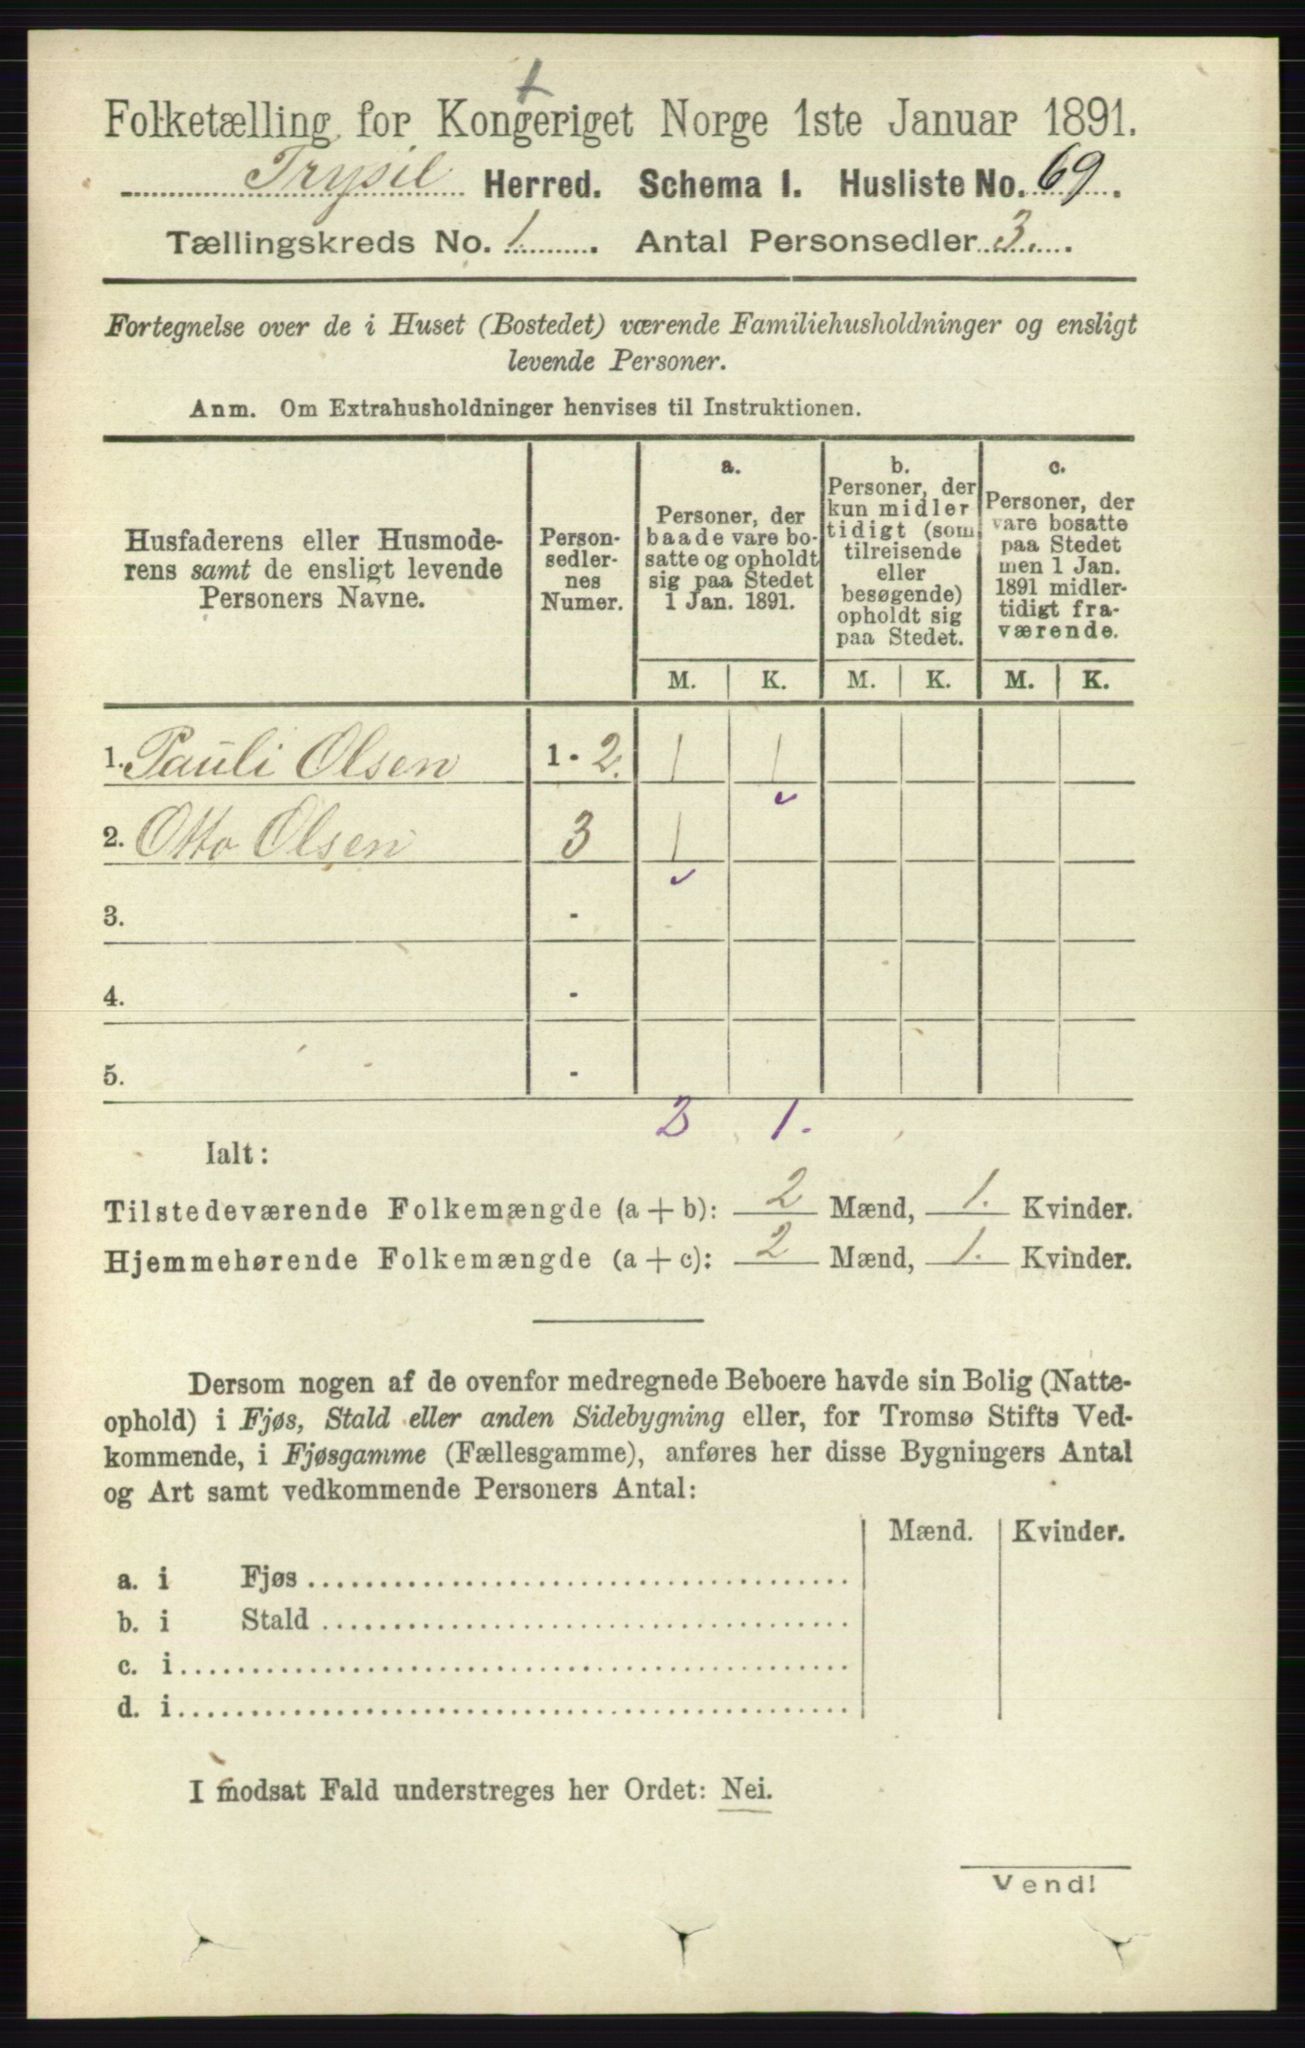 Folketælling for Kongeriget Norge 1ste Januar 1891.
Trysil Herred. Schema I. Husliste No. 69.
Tællingskreds No. 1. Antal Personsedler 3.
Fortegnelse over de i Huset (Bostedet) værende Familiehusholdninger og ensligt
levende Personer.
Anm. Om Extrahusholdninger henvises til Instruktionen.
Husfaderens eller Husmode-
rens samt de ensligt levende
Personers Navne.
Person-
sedler-
nes
Numer.
a.
Personer, der
baade vare bo-
satte og opholdt
sig paa Stedet
1 Jan. 1891.
b.
Personer, der
kun midler
tidigt (som
tilreisende
eller
besøgende)
opholdt sig
paa Stedet.
c.
Personer, der
vare bosatte
paa Stedet
men 1 Jan.
1891 midler-
tidigt fra-
værende.
M. K. M. K. M. K.
1. Pauli Olsen 1 - 2. 1 1
2. Otto Olsen 3 1
3. -
4. -
5. -
2 1.
Ialt:
Tilstedeværende Folkemængde (a + b): 2 Mænd, 1. Kvinder.
Hjemmehørende Folkemængde (a + c): 2 Mænd, 1. Kvinder.
Dersom nogen af de ovenfor medregnede Beboere havde sin Bolig (Natte-
ophold) i Fjøs, Stald eller anden Sidebygning eller, for Tromsø Stifts Ved-
kommende, i Fjøsgamme (Fællesgamme), anføres her disse Bygningers Antal
og Art samt vedkommende Personers Antal:
Mænd. Kvinder.
a. i Fjøs
b. i Stald
c. i
d. i
I modsat Fald understreges her Ordet: Nei.
Vend!